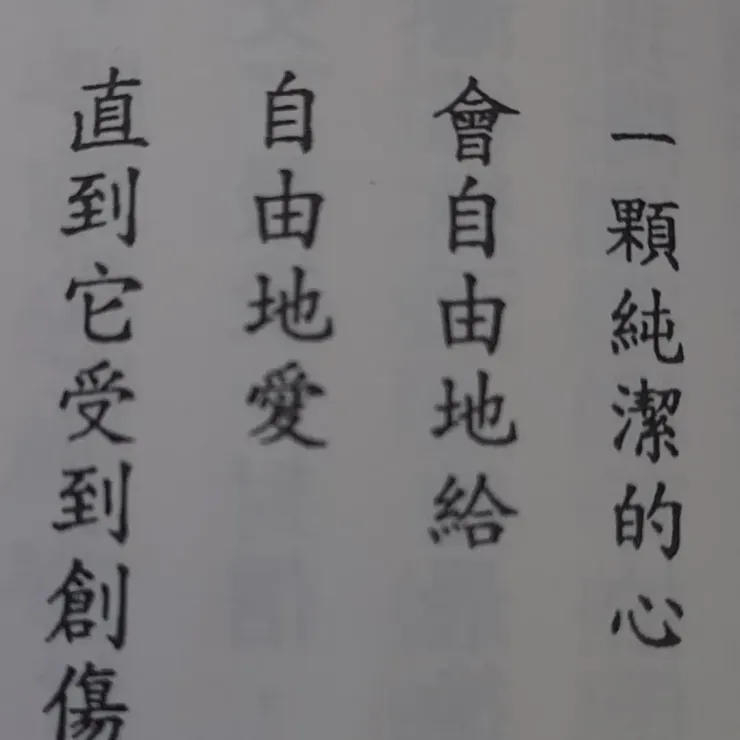 一顆純潔的心
會自由地給
自由地愛
直到它受到創傷